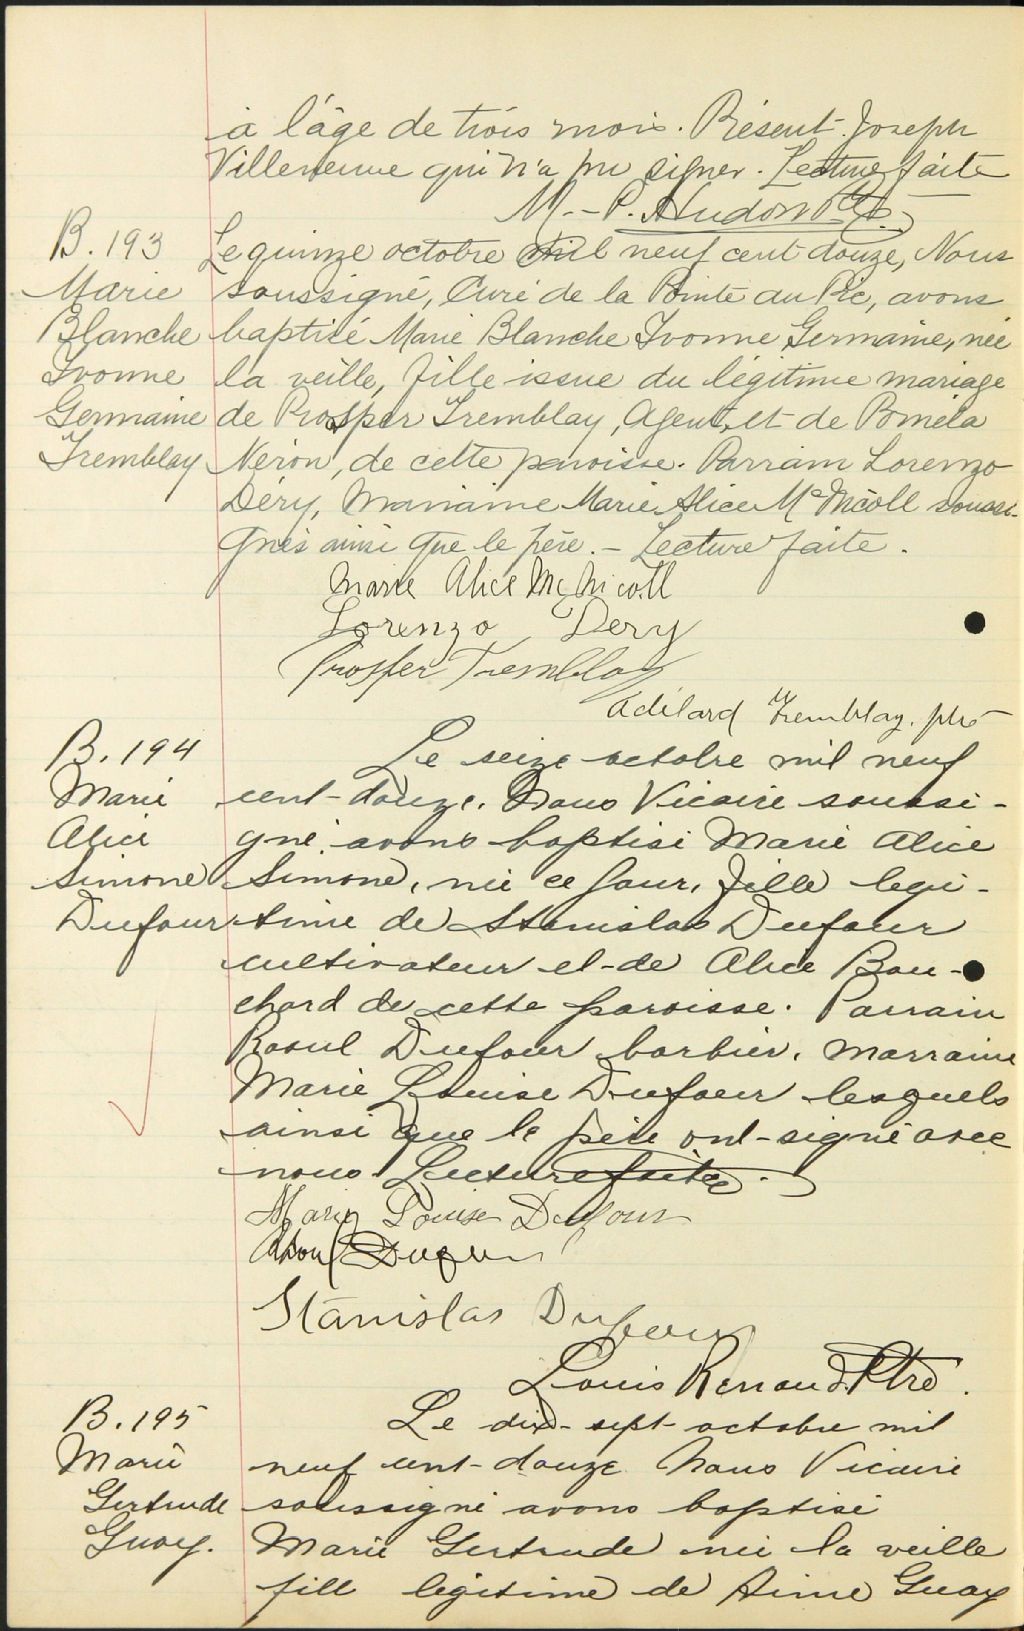 à l'âge de trois mois. Présent Joseph
Villeneuve qui n'a pu signer. Lecture faite
M.-P. Hudon Ptre
B. 193
Marie
Blanche
Yvonne
Germaine
Tremblay
Le quinze octobre mil neuf cent douze, Nous
soussigné, Curé de la Pointe au Pic, avons
baptisé Marie Blanche Yvonne Germaine, née
la veille, fille issue du légitime mariage
de Prosper Tremblay, Agent, et de Poméla
Néron, de cette paroisse. Parrain Lorenzo
Déry, Marraine Marie Alice McNicoll soussi-
gnés ainsi que le père. - Lecture faite.
Marie Alice McNicoll
Lorenzo Dery
Prosper Tremblay
Adélard Tremblay. ptre
B. 194
Marie
Alice
Simone
Dufour
Le seize octobre mil neuf
cent-douze. Nous Vicaire soussi-
gné. avons baptisé Marie Alice
Simone, née ce jour, fille legi-
time de Stanislas Dufour
cultivateur et-de Alice Bou-
chard de cette paroisse. Parrain
Raoul Dufour barbier, marraine
Marie Louise Dufour lesquels
ainsi que le père ont-signé avec
nous Lecture faite.
Marie Louise Dufour
Raoul Dufour
Stanislas Dufour
Louis Renaud. Ptre.
B. 195
Marie
Gertrude
Guay.
Le dix-sept octobre mil
neuf cent-douze Nous Vicaire
soussigné avons baptisé
Marie Gertrude née la veille
fill légitime de Aimé Guay